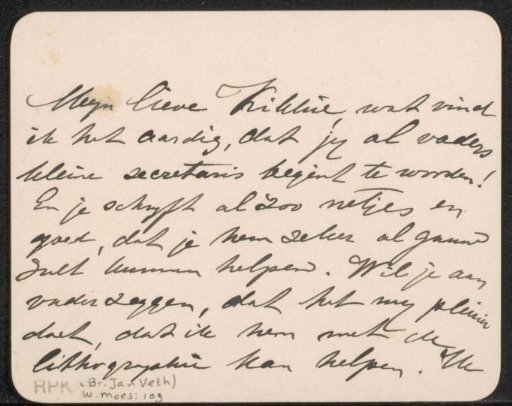 Mijn lieve Kikkie, wat vind
ik het aardig, dat jij al vaders
kleine secretaris begint te worden!
En je schrijft al zoo netjes en
goed, dat je hem zeker al gauw
zult kunnen helpen. Wil je aan
vader zeggen, dat het mij plezier
doet, dat ik hem met de
lithographie kan helpen. Ik
RPK (Br. Jan Veth)
W. Moes: 109